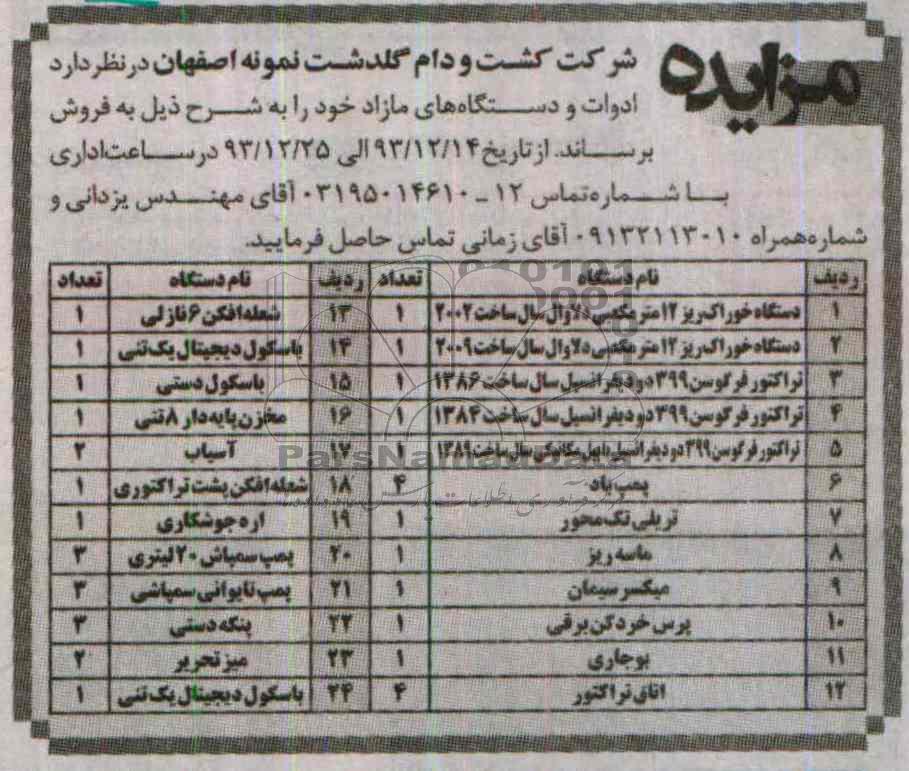 مزایده
شرکت کشت و دام گلدشت نمونه اصفهان در نظر دارد
ادوات و دستگاه‌های مازاد خود را به شرح ذیل به فروش
برساند. از تاریخ ۹۳/۱۲/۱۴ الی ۹۳/۱۲/۲۵ در ساعت اداری
با شماره تماس ۱۲ - ۰۳۱۹۵۰۱۴۶۱۰ آقای مهندس یزدانی و
شماره همراه ۰۹۱۳۲۱۱۳۰۱۰ آقای زمانی تماس حاصل فرمایید.
ردیف نام دستگاه تعداد ردیف نام دستگاه تعداد
۱ دستگاه خوراک ریز ۱۲ متر مکعبی دلاوال سال ساخت ۲۰۰۲ ۱ ۱۳ شعله افکن ۶ نازلی ۱
۲ دستگاه خوراک ریز ۱۲ متر مکعبی دلاوال سال ساخت ۲۰۰۹ ۱ ۱۴ باسکول دیجیتال یک تنی ۱
۳ تراکتور فرگوسن ۳۹۹ دو دیفرانسیل سال ساخت ۱۳۸۶ ۱ ۱۵ باسکول دستی ۱
۴ تراکتور فرگوسن ۳۹۹ دو دیفرانسیل سال ساخت ۱۳۸۴ ۱ ۱۶ مخزن پایه دار ۸ تنی ۱
۵ تراکتور فرگوسن ۳۹۹ دو دیفرانسیل با بیل مکانیکی سال ساخت ۱۳۸۹ ۱ ۱۷ آسیاب ۲
۶ پمپ باد ۴ ۱۸ شعله افکن پشت تراکتوری ۱
۷ تریلی تک محور ۱ ۱۹ اره جوشکاری ۱
۸ ماسه ریز ۱ ۲۰ پمپ سمپاش ۲۰ لیتری ۳
۹ میکسر سیمان ۱ ۲۱ پمپ تایوانی سمپاشی ۳
۱۰ پرس خرد کن برقی ۱ ۲۲ پنکه دستی ۳
۱۱ بوجاری ۱ ۲۳ میز تحریر ۲
۱۲ اتاق تراکتور ۴ ۲۴ باسکول دیجیتال یک تنی ۱
ParsNamadData